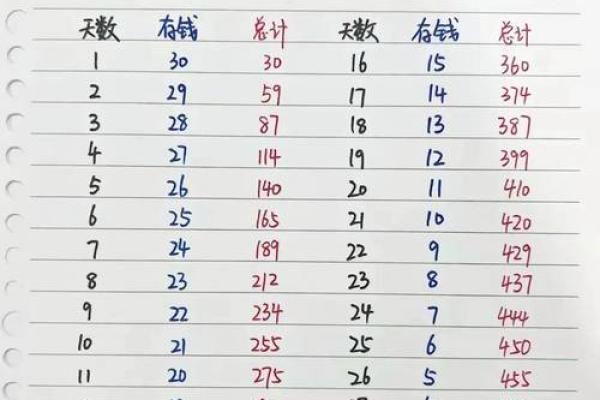 天数 存钱 总计 天数 存钱 总计
1 30 30 16 15 360
2 29 59 17 14 374
3 28 87 18 13 387
4 27 114 19 12 399
5 26 140 20 11 410
6 25 165 21 10 420
7 24 189 22 9 429
8 23 212 23 8 437
9 22 234 24 7 444
10 21 255 25 6 450
11 20 275 26 5 455